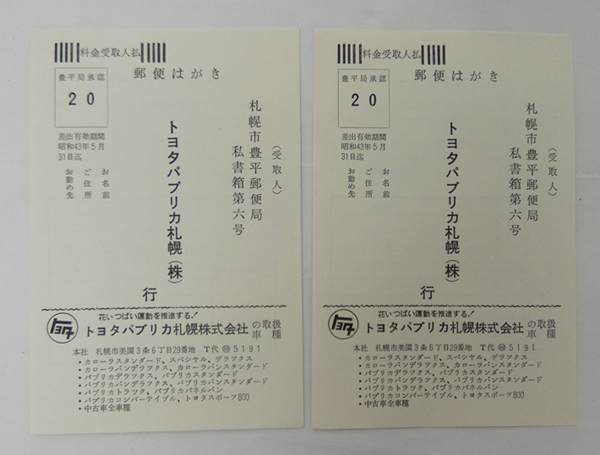 料金受取人払
郵便はがき
豊平局承認
20
差出有効期間
昭和43年5月
31日迄
(受取人)
札幌市豊平郵便局
私書箱第六号
トヨタパブリカ札幌(株)行
お名前
ご住所
お勤め先
花いつぱい運動を推進する!
トヨタ トヨタパブリカ札幌株式会社の取扱車種
本社 札幌市美園3条6丁目29番地 T代 5191
・カローラスタンダード、スペシャル、デラツクス
・カローラバンデラツクス、カローラバンスタンダード
・パブリカデラツクス、パブリカスタンダード
・パブリカバンデラツクス、パブリカバンスタンダード
・パブリカトラツク、パブリカパネルバン
・パブリカコンバーテイブル、トヨタスポーツ800
・中古車全車種
料金受取人払
郵便はがき
豊平局承認
20
差出有効期間
昭和43年5月
31日迄
(受取人)
札幌市豊平郵便局
私書箱第六号
トヨタパブリカ札幌(株)行
お名前
ご住所
お勤め先
花いつぱい運動を推進する!
トヨタ トヨタパブリカ札幌株式会社の取扱車種
本社 札幌市美園3条6丁目29番地 T代 5191
・カローラスタンダード、スペシャル、デラツクス
・カローラバンデラツクス、カローラバンスタンダード
・パブリカデラツクス、パブリカスタンダード
・パブリカバンデラツクス、パブリカバンスタンダード
・パブリカトラツク、パブリカパネルバン
・パブリカコンバーテイブル、トヨタスポーツ800
・中古車全車種